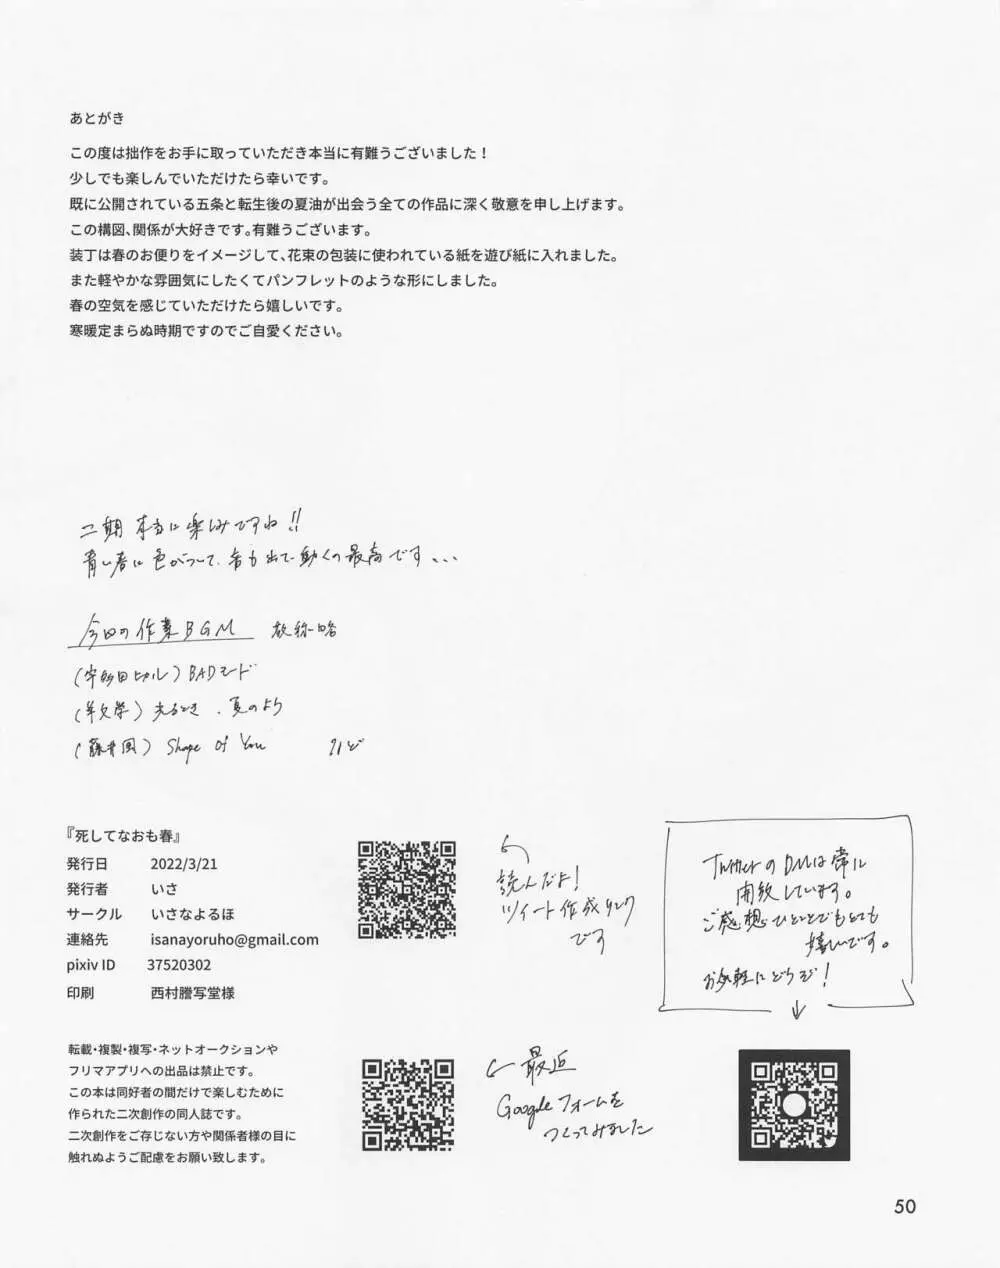 あとがき
この度は拙作をお手に取っていただき本当に有難うございました！
少しでも楽しんでいただけたら幸いです。
既に公開されている五条と転生後の夏油が出会う全ての作品に深く敬意を申し上げます。
この構図、関係が大好きです。有難うございます。
装丁は春のお便りをイメージして、花束の包装に使われている紙を遊び紙に入れました。
また軽やかな雰囲気にしたくてパンフレットのような形にしました。
春の空気を感じていただけたら嬉しいです。
寒暖定まらぬ時期ですのでご自愛ください。
二期 本当に楽しみですね!!
青い春に色がついて、音も出て動くの最高です、、、
今回の作業BGM 敬称略
(宇多田ヒカル) BADモード
(羊文学) 光るとき、夏のよう
(藤井風) Shape Of You など
『死してなおも春』
発行日 2022/3/21
発行者 いさ
サークル いさなよるほ
連絡先 isanayoruho@gmail.com
pixiv ID 37520302
印刷 西村謄写堂様
読んだよ！
ツイート作成リンク
です
TwitterのDMは常に
開放しています。
ご感想ひとことでもとても
嬉しいです。
お気軽にどうぞ！
転載・複製・複写・ネットオークションや
フリマアプリへの出品は禁止です。
この本は同好者の間だけで楽しむために
作られた二次創作の同人誌です。
二次創作をご存じない方や関係者様の目に
触れぬようご配慮をお願い致します。
最近
Googleフォームを
つくってみました
50